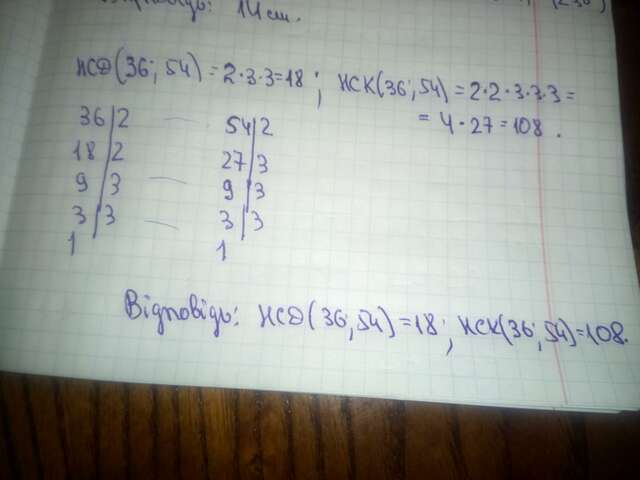 Відповідь: 14 см.
НСД(36; 54) = 2·3·3=18; НСК(36; 54) = 2·2·3·3·3=
= 4·27=108.
36|2 54|2
18|2 27|3
9|3 9|3
3|3 3|3
1 1
Відповідь: НСД(36; 54)=18; НСК(36; 54)=108.